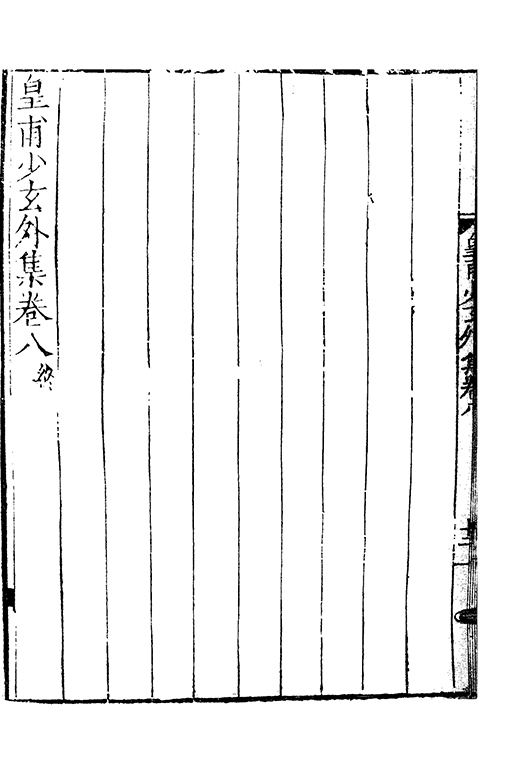 皇甫少玄外集卷八
十二
皇甫少玄外集卷八終